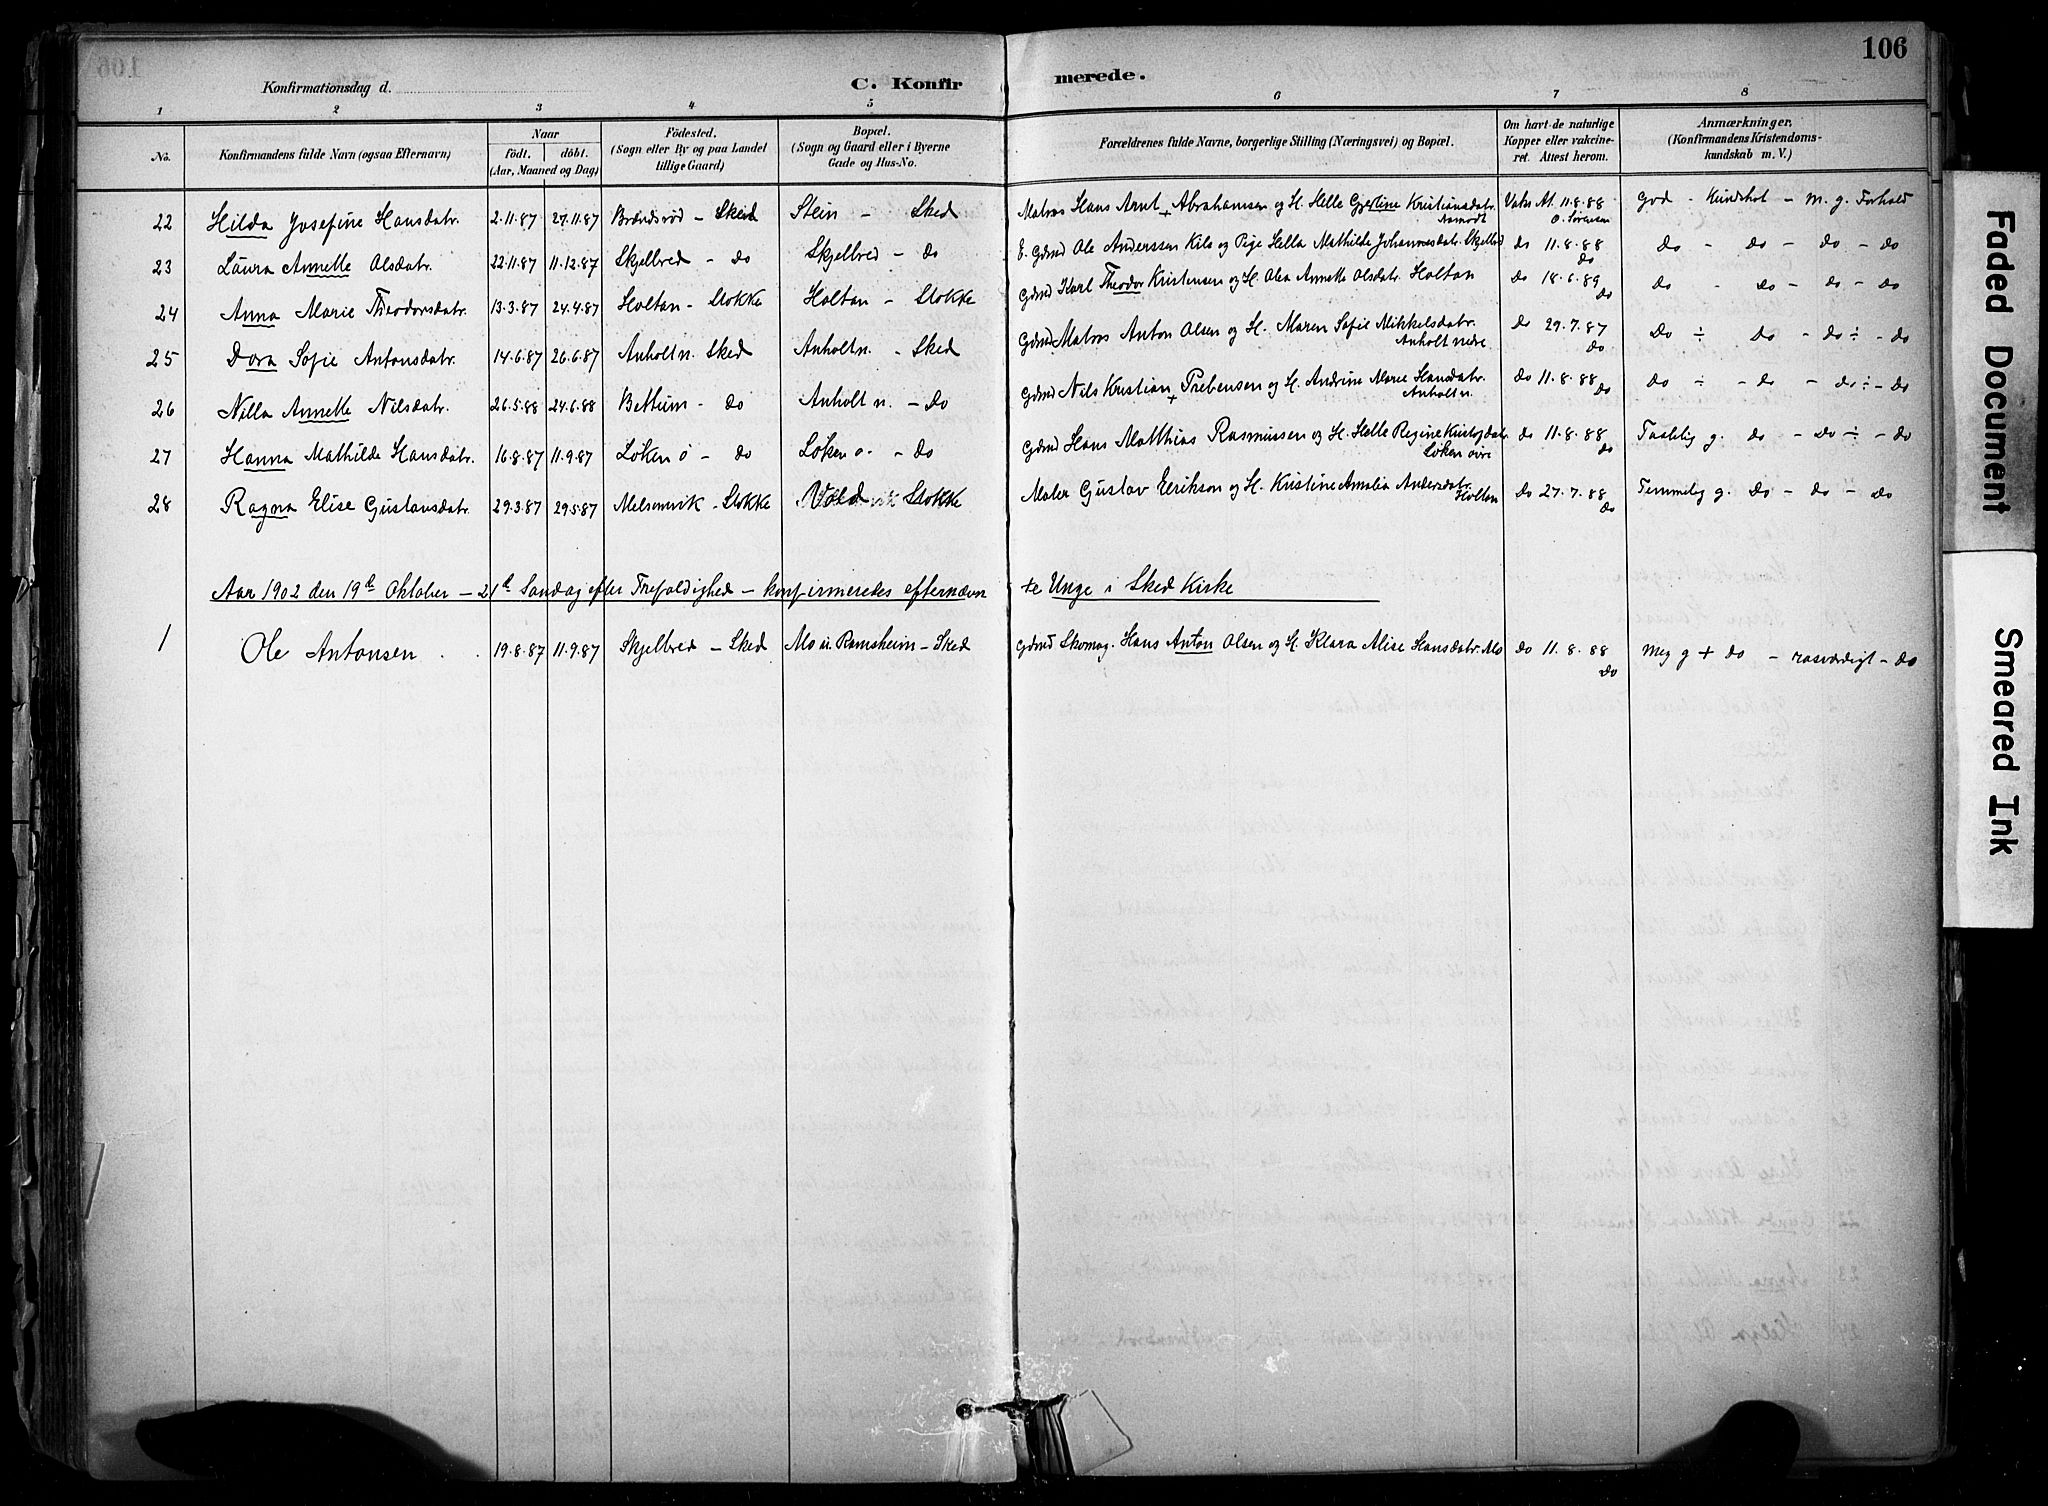 106
Konfirmationsdag d.
C. Konfirmerede.
1 2 3 4 5 6 7 8
No. Konfirmandens fulde Navn (ogsaa Efternavn) Naar født. døbt. (Aar, Maaned og Dag) Fødested. (Sogn eller By og paa Landet tillige Gaard) Bopæl. (Sogn og Gaard eller i Byerne Gade og Hus-No. Forældrenes fulde Navne, borgerlige Stilling (Næringsvei) og Bopæl. Om havt de naturlige Kopper eller vakcineret. Attest herom. Anmærkninger. (Konfirmandens Kristendomskundskab m. V.)
22 Hilda Josefine Hansdatr. 2.11.87 27.11.87 Brændsrød - Sked Stein - Sked Matros Hans Arnt Abrahamsen og H. Helle Gjertine Kristiansdatr. Vakc. At. 11.8.88 O. Sørensen God - Kundskab - m. g. Forhold
23 Laura Annette Olsdatr. 22.11.87 11.12.87 Skjelbred - do Skjelbred - do E. Gdmd Ole Anderssen Kile og Pige Hella Mathilde Johannesdatr. Skjelbred do 11.8.88 do do - do - do - do
24 Anna Marie Theodorsdatr. 13.3.87 24.4.87 Holtan - Stokke Holtan - Stokke Gdmd Karl Theodor Kristensen og H. Olea Annette Olsdatr. Holtan do 18.6.89 do do - do - do - do
25 Dora Sofie Antonsdatr. 14.6.87 26.6.87 Anholt n. Sked Anholt n. - Sked Gdmd Matros Anton Olsen og H. Maren Sofie Mikkelsdatr. Anholt nedre do 29.7.87 do do ÷ do - do ÷ - do
26 Nilla Annette Nilsdatr. 26.5.88 24.6.88 Bettum - do Anholt n. - do Gdmd Nils Kristian Prebensen og H. Andrine Marie Hansdatr. Anholt n. do 11.8.88 do do ÷ - do - do ÷ - do
27 Hanna Mathilde Hansdatr. 16.8.87 11.9.87 Løken ø - do Løken ø. - do Gdmd Hans Matthias Rasmussen og H. Helle Regine Kristofdatr. Løken øvre do 11.8.88 do Taalelig g. do - do ÷ - do
28 Ragna Elise Gustavsdatr. 29.3.87 29.5.87 Melsomvik - Stokke Stokke Maler Gustav Eerikson og H. Kristine Amalia Andersdatr. Holtan do 27.7.88 do Temmelig g. do - do - do
Aar 1902 den 19de Oktober - 21de Søndag efter Trefoldighed - konfirmeredes efternævnte Unge i Sked Kirke
1 Ole Antonsen 19.8.87 11.9.87 Skjelbred - Sked Mo u. Ramsheim - Sked Gdmd Skomag. Hans Anton Olsen og H. Klara Alise Hansdatr. Mo do 11.8.88 do Meg g + do - rosværdigt - do
Faded Document
Smeared Ink